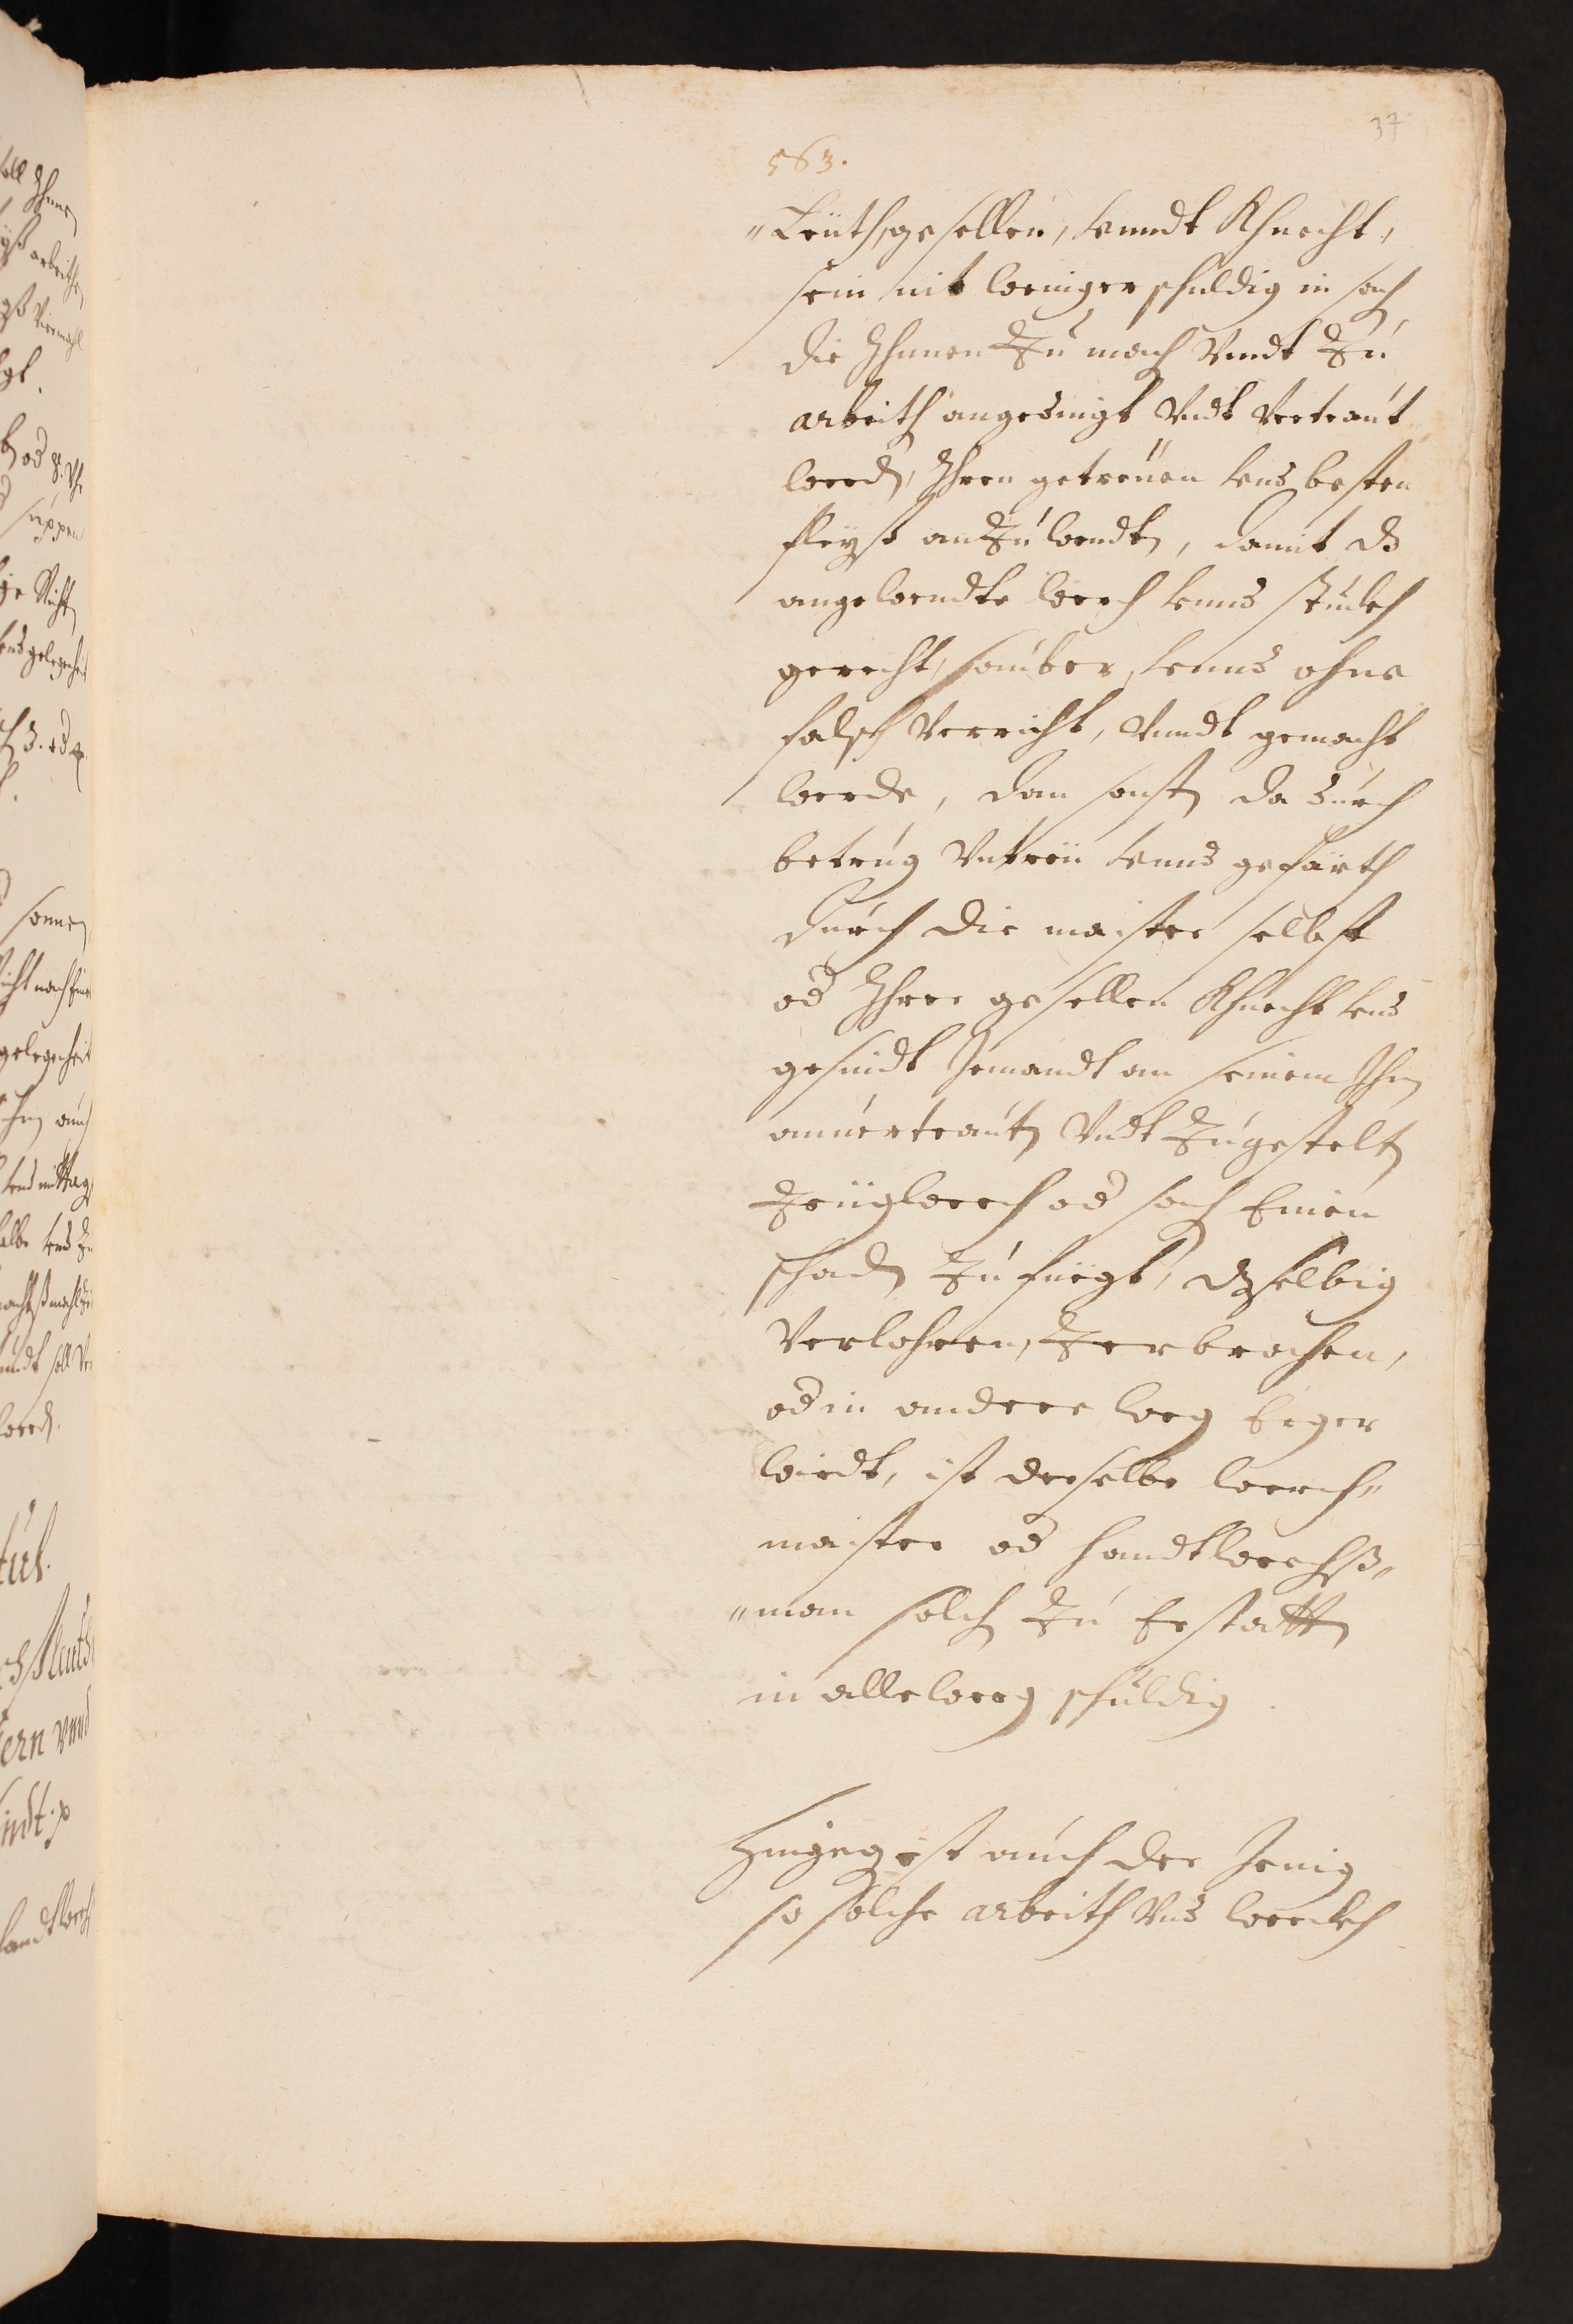 37
563.
"Leüth, gesellen, vnndt Khnecht,
sein nit weniger schuldig in sach
die Ihnnen Zu mach Vnndt Zu
arbeith angedingt Vndt Vertraut
werd, Ihren getreuen vnd besten
fleyß anZuwendt, damit ds
angewendte werch vnnd stuckh
gerecht, sauber, vnnd ohne
falsch Verricht, Vnndt gemacht
werde, dan sonst da durch
betrug Vntreü vnnd gefärth
durch die maister selbst
od Ihre gesellen Khnecht vnd
gesindt Jemandt an seinem Ihm
anuertraut Vndt Zugestelt
Zeügwerch od sach Einen
schad Zufüegt, dzselbig
Verlohren, Zerbrochen,
od in andere weg Erger
wirdt, ist derselbe werch"
maister od handtwerchß"
"man solch Zu Erstatt
in alleweeg schuldig
Hingeg ist auch der Jenig
so solche arbeith Vnd werckh